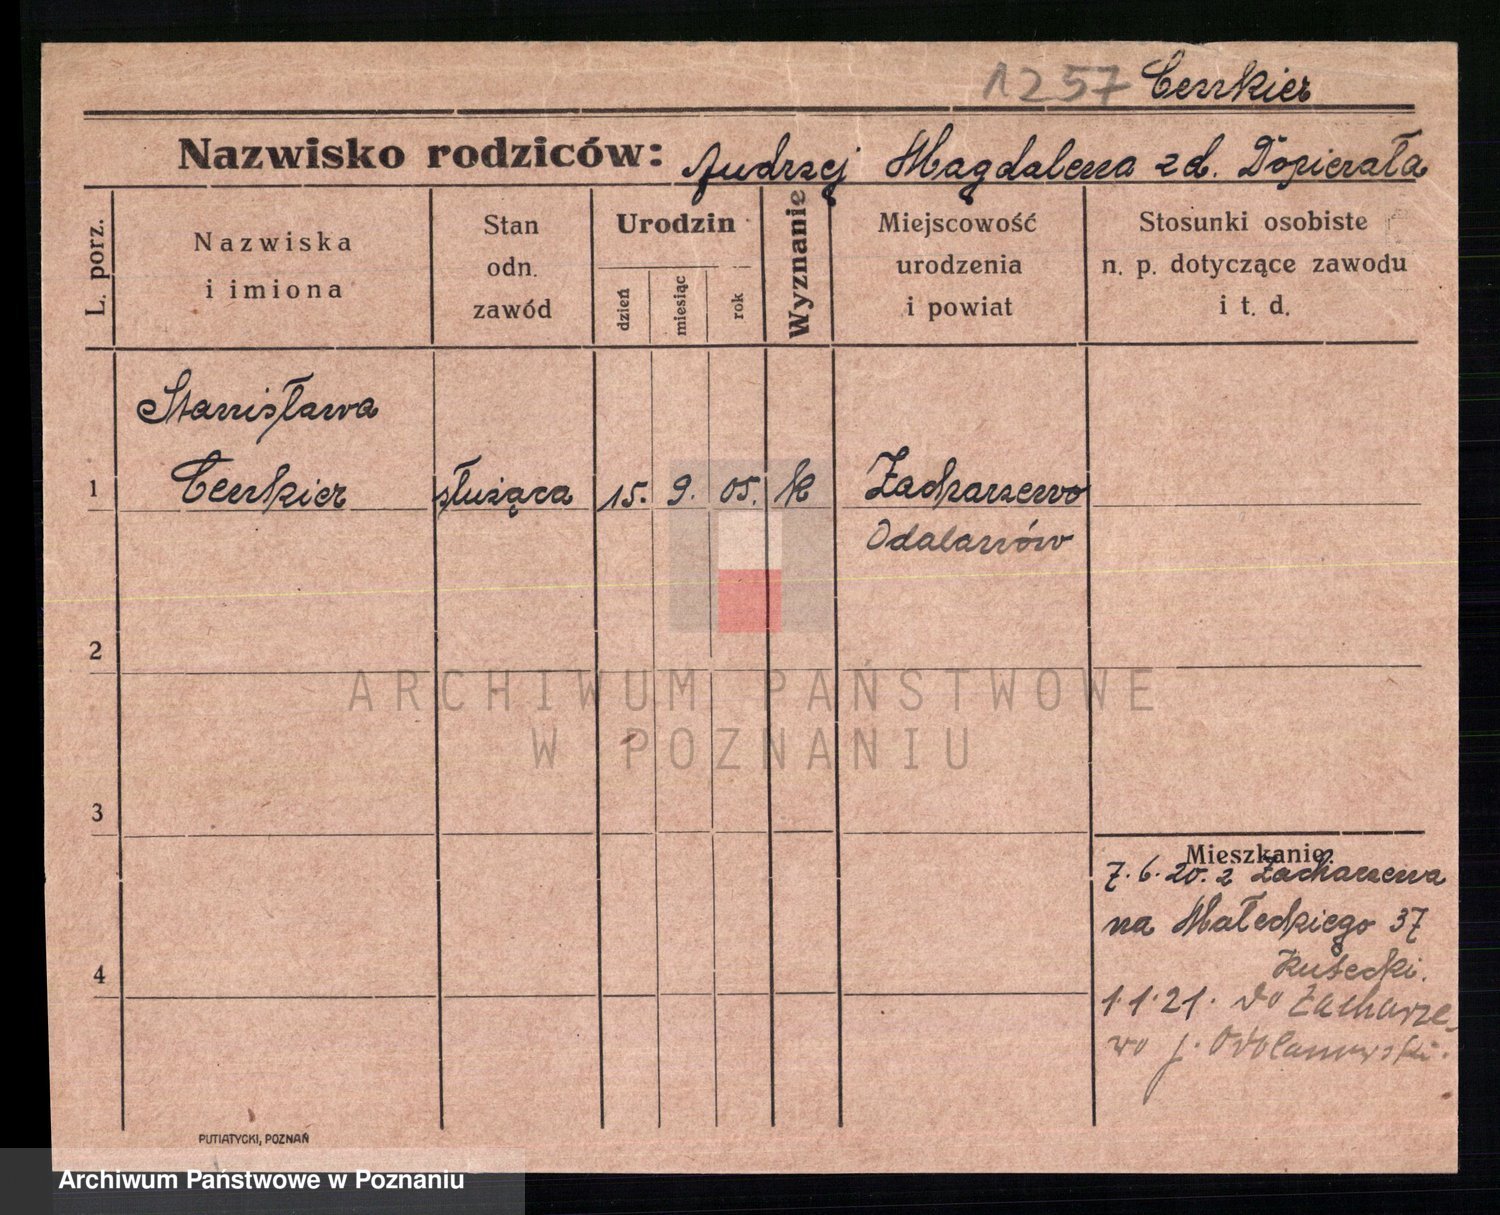 1257 Cenkier
Nazwisko rodziców: Andrzej Magdalena zd. Dopierała
L. porz.
Nazwiska
i imiona
Stan
odn.
zawód
Urodzin
dzień
miesiąc
rok
Wyznanie
Miejscowość
urodzenia
i powiat
Stosunki osobiste
n. p. dotyczące zawodu
i t. d.
Stanisława
1 Cenkier służąca 15. 9. 05. k Zacharzewo
Odalanów
2
ARCHIWUM PAŃSTWOWE
W POZNANIU
3
Mieszkanie:
7.6.20. z Zacharzewa
na Małeckiego 37
4
1.1.21. do Zacharze-
wo p. Odolanowski.
PUTIATYCKI, POZNAŃ
Archiwum Państwowe w Poznaniu